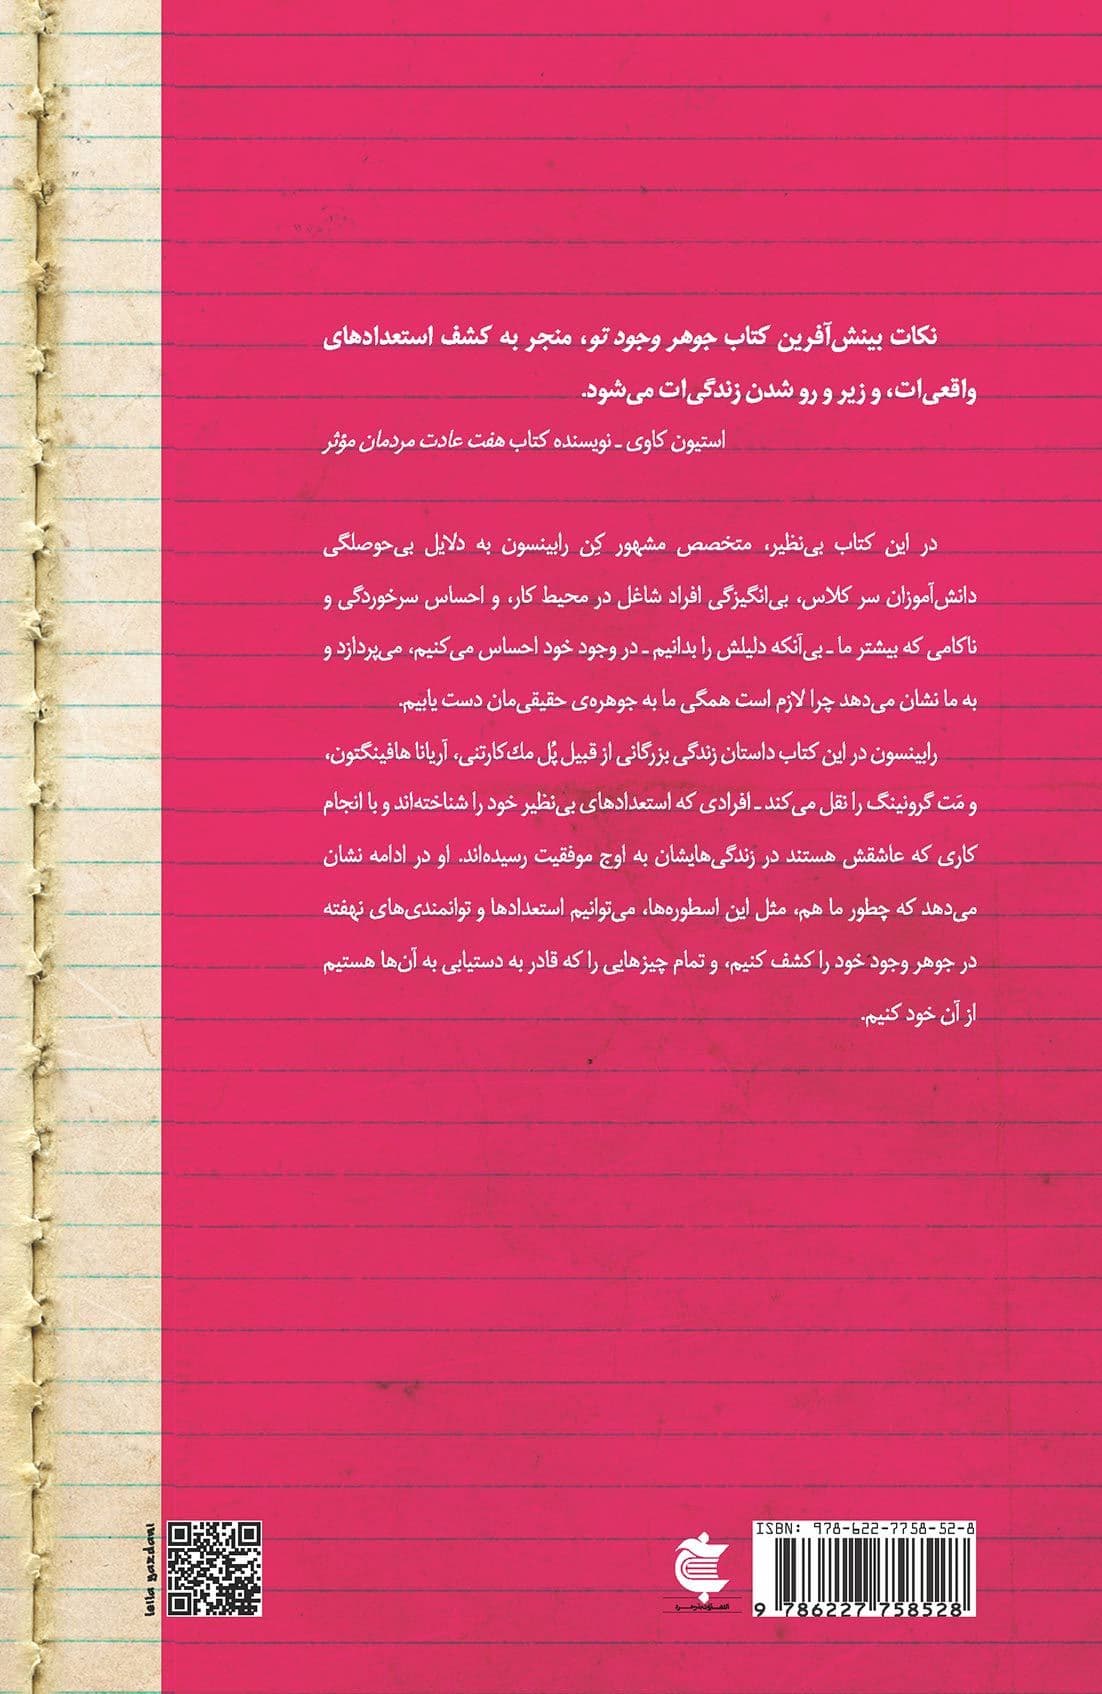 نکات بینش‌آفرین کتاب جوهر وجود تو، منجر به کشف استعدادهای
واقعی‌ات، و زیر و رو شدن زندگی‌ات می‌شود.
استیون کاوی ـ نویسنده کتاب هفت عادت مردمان مؤثر
در این کتاب بی‌نظیر، متخصص مشهور کِن رابینسون به دلایل بی‌حوصلگی
دانش‌آموزان سر کلاس، بی‌انگیزگی افراد شاغل در محیط کار، و احساس سرخوردگی و
ناکامی که بیشتر ما ـ بی‌آنکه دلیلش را بدانیم ـ در وجود خود احساس می‌کنیم، می‌پردازد و
به ما نشان می‌دهد چرا لازم است همگی ما به جوهره‌ی حقیقی‌مان دست یابیم.
رابینسون در این کتاب داستان زندگی بزرگانی از قبیل پُل مك‌کارتنی، آریانا هافینگتون،
و مَت گرونینگ را نقل می‌کند ـ افرادی که استعدادهای بی‌نظیر خود را شناخته‌اند و با انجام
کاری که عاشقش هستند در زندگی‌هایشان به اوج موفقیت رسیده‌اند. او در ادامه نشان
می‌دهد که چطور ما هم، مثل این اسطوره‌ها، می‌توانیم استعدادها و توانمندی‌های نهفته
در جوهر وجود خود را کشف کنیم، و تمام چیزهایی را که قادر به دستیابی به آن‌ها هستیم
از آن خود کنیم.
leila yazdani
ISBN: 978-622-7758-52-8
9 786227 758528